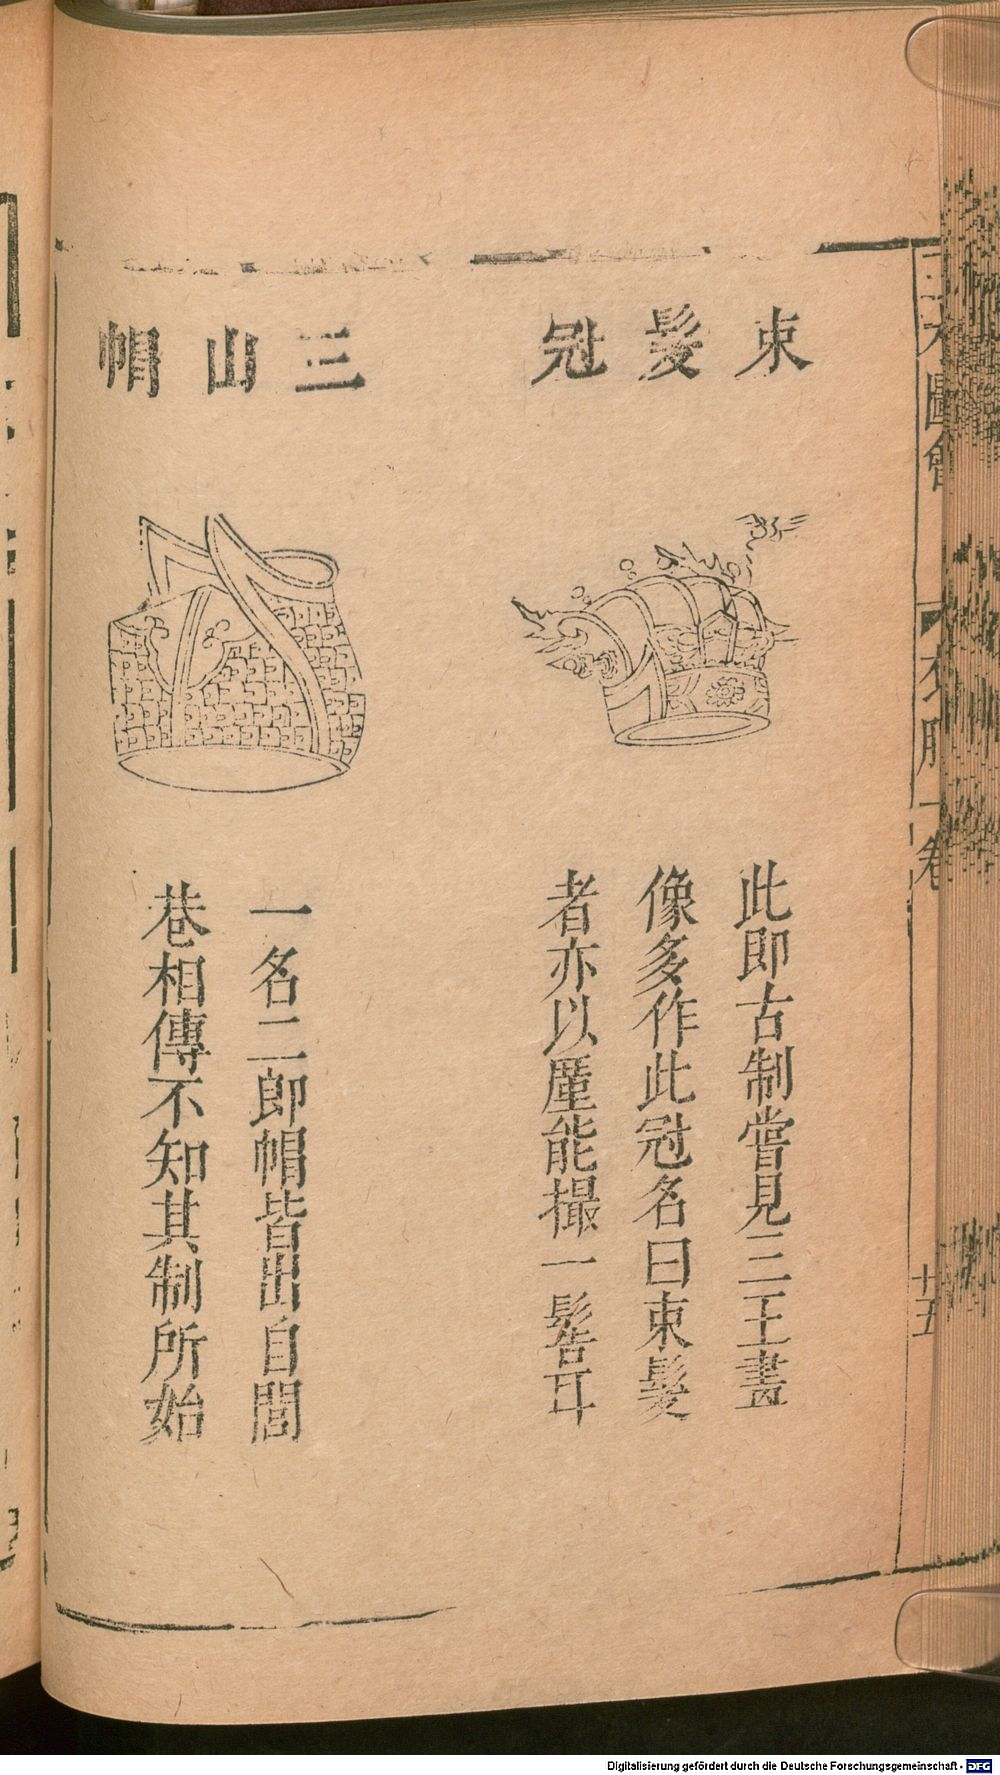 三才圖會
衣服一卷
廿五
束髮冠
此即古制嘗見三王畫
像多作此冠名曰束髮
者亦以厪能撮一髻耳
三山帽
一名二郎帽皆出自閭
巷相傳不知其制所始
Digitalisierung gefördert durch die Deutsche Forschungsgemeinschaft - DFG